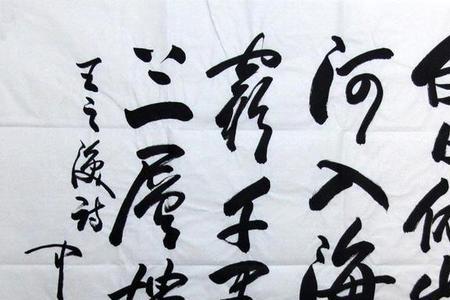 白日依山
河入海
窮千里
上一層樓
王之渙詩